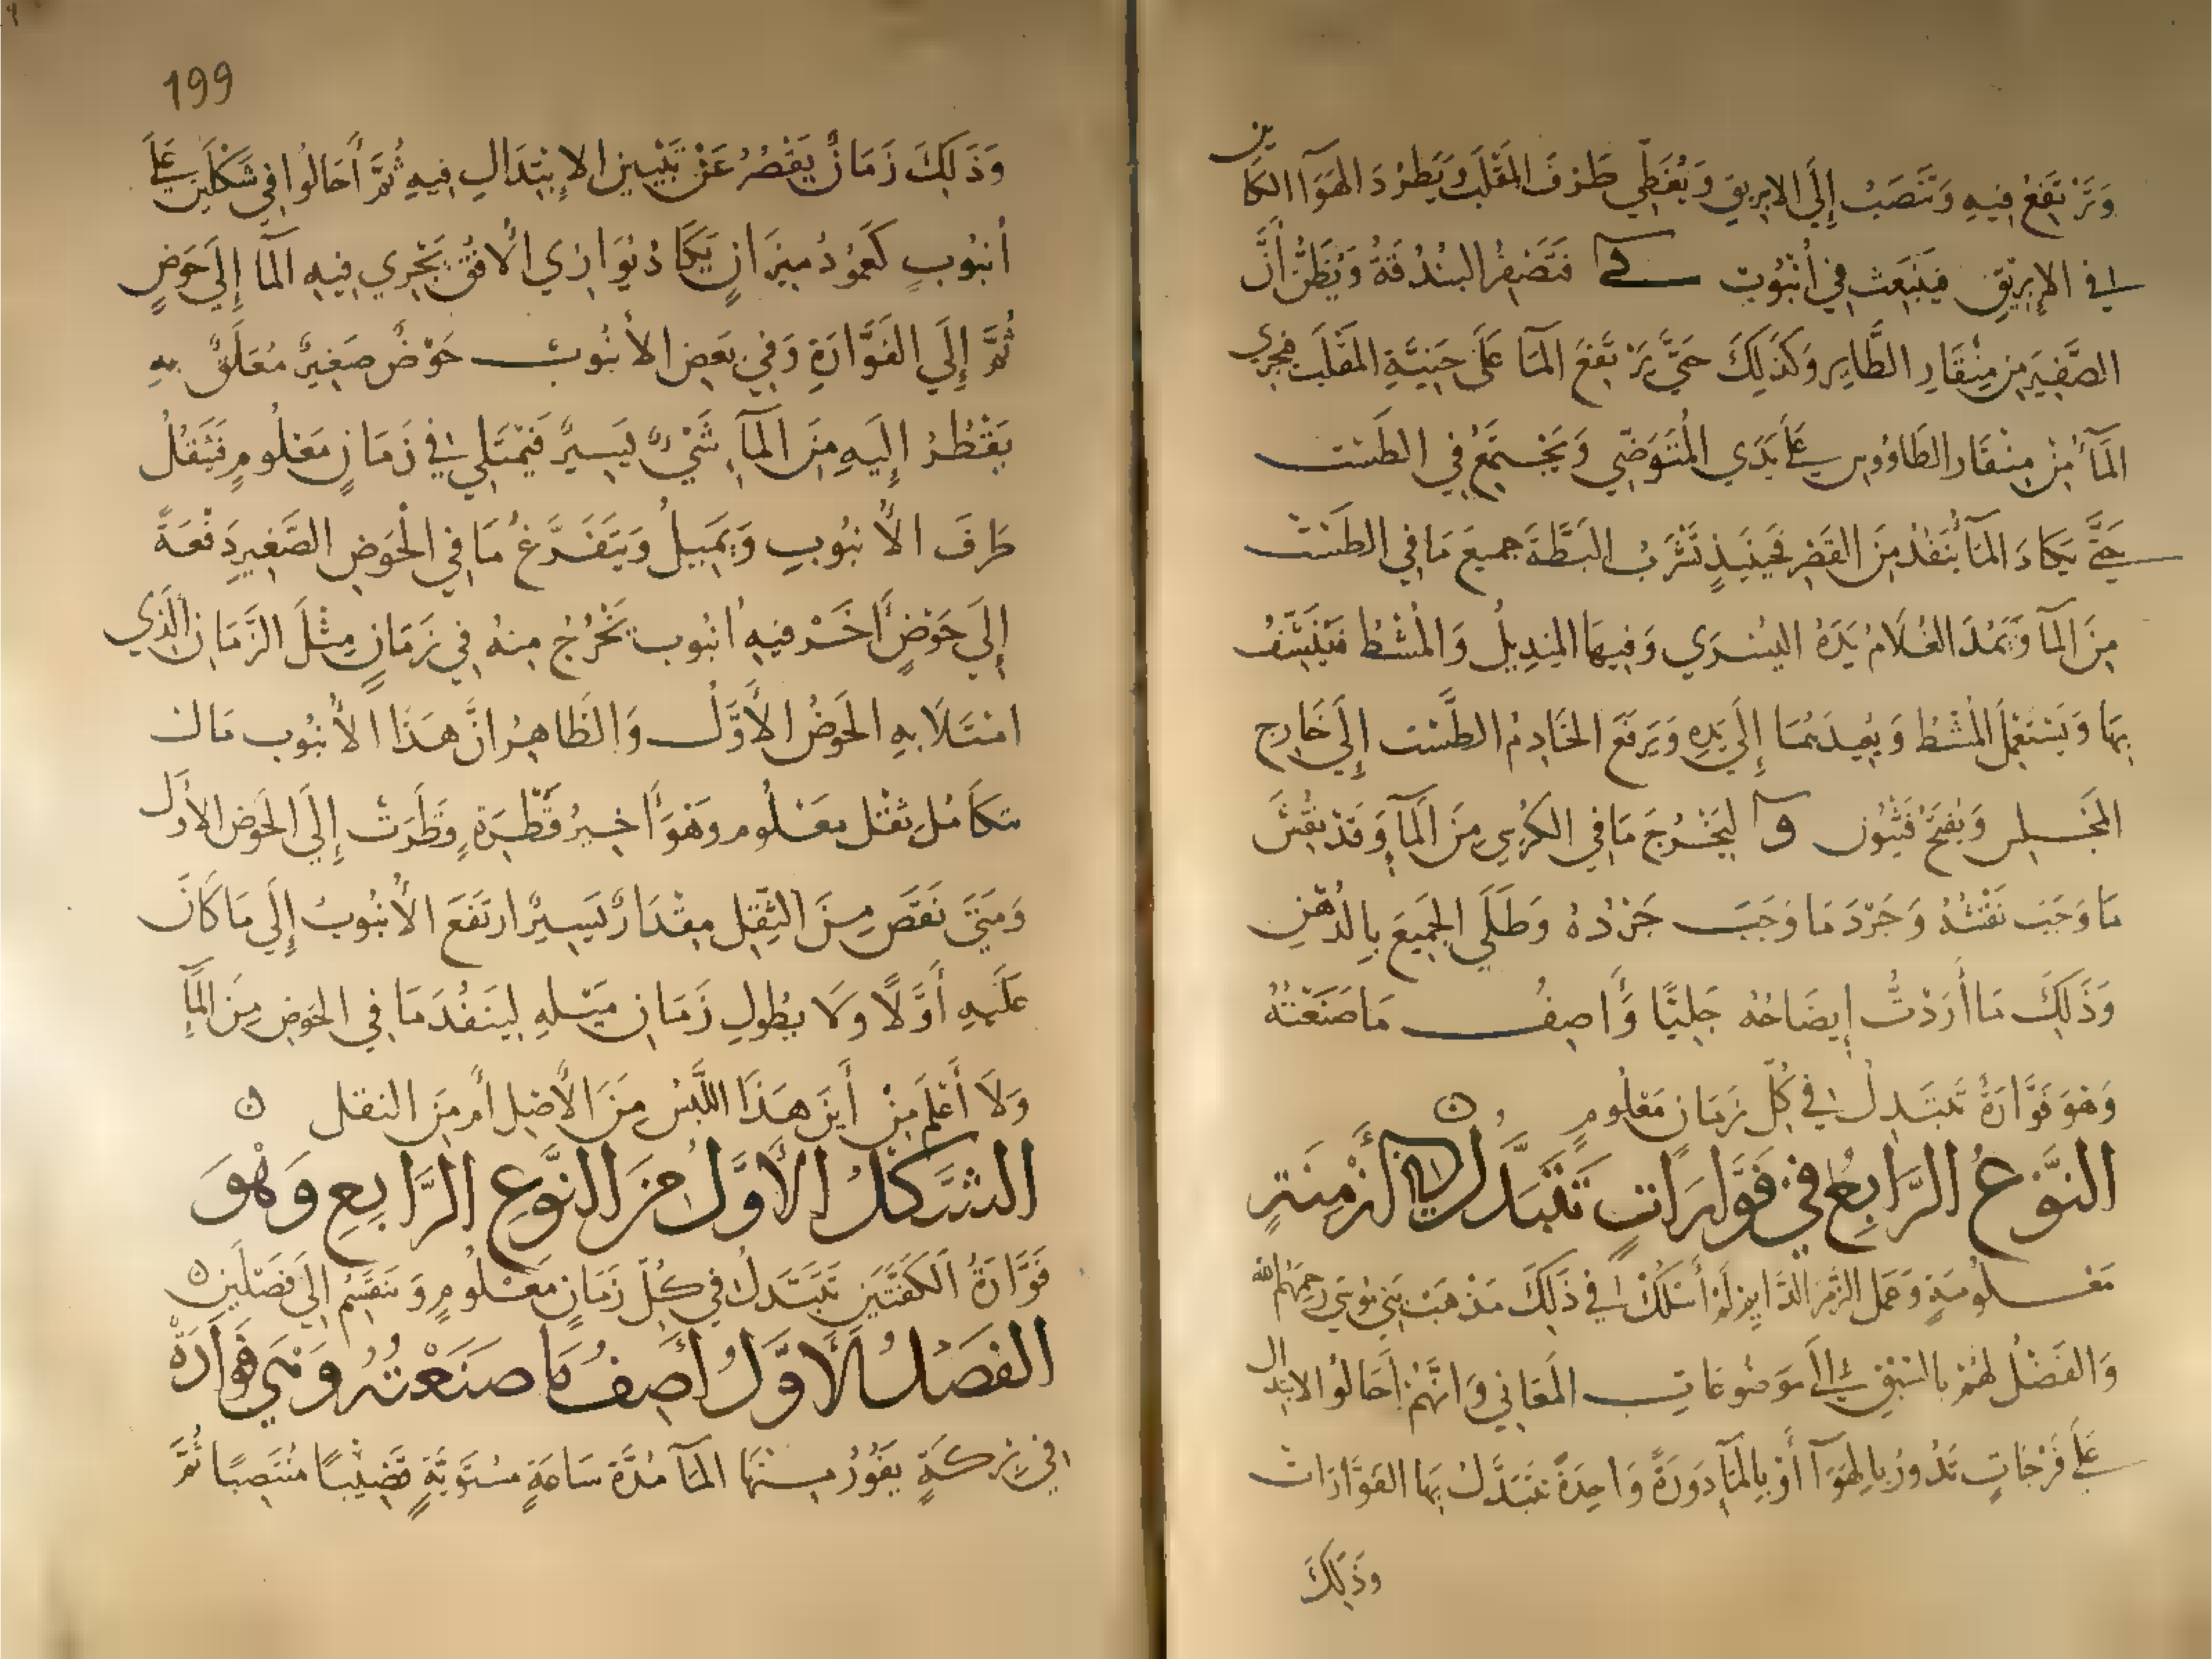 وَتَرْتَفِعُ فِيهِ وَتَنْصَبُّ إِلَى الابريق وَيُغَطِّي طَرَفَ المَقْلَبِ وَيَطْرُدَ الهَوَآ الكَاين
في الإبْرِيقِ فَيَنْبَعِثُ فِي أُنْبُوبِ فَتَصْفِرُ البُنْدُقَةُ وَيُظَنُّ أَنَّ
الصَّفِيرَ مِن مِنْقَارِ الطَّايِر وَكَذَلِكَ حَتَّى يَرْتَفِعَ المَآ عَلَى جَنَبَيَّةِ المَقْلَبِ فيجرى
المَآءُ مِنْ مِنْقَار الطَاوُوس عَلَى يَدَي المُتَوَضّي وَيَجْتَمِعُ فِي الطَسْت
حَتَّى يَكَادَ المَآ يَنْفَدُ مِنَ القَصْرِ فَحِينَيذٍ تَشْرَبُ البَطَّةُ جميعَ مَا فِي الطَسْت
مِنَ المَآ وَيَمُدّ الغُلَامُ يَدَهُ اليُسْرَي وَفِيهَا المِنْدِيلُ وَالمُشْطُ فَيَتَنَشَّفُ
بِهَا وَيَسْتَعْمِلُ المُشْطَ وَيُعِيدَهُمَا إِلَى يَدِهِ وَيَرفَعُ الخَادِمُ الطَّسْت إِلَي خَارِج
المَجْلِس وَيَفْتَحُ فَثْيُون لِيَخْرُجَ مَا فِي الكُرْسِي مِنَ المَآءِ وَقَدْ نَقَّشَ
مَا وَجَبَ نَقْشُهُ وَجَرْدَ مَا وَجَبَ جَرْدُهُ وَطَلَي الجَمِيعَ بِالدُهْنِ
وَذَلِكَ مَا أَرَدْتُ إِيضَاحُهُ جَلِيًّا وَأصِفُ مَا صَنَعْتُهُ
وَهْوَ فَوَّارَةٌ تَتَبَدّلُ في كُلِّ زَمَانٍ مَعْلُومٍ
النَّوْعُ الرَّابِعُ فِي فَوَّارَاتٍ تَتَبَدَّلُ فِي أَزْمِنَةٍ
مَعْلُومَةٍ وَعَمَل الزَّمْر الدَّايمِ لَمْ أَسْلُكْ في ذَلِكَ مَذْهَبَ بَنِي مُوسَي رَحِمَهُم الله
وَالفَضْلُ لَهُمْ بِالسَبْقِ إِلى مَوضُوعَاتِ المَعَانِي وَانَّهُمْ أَحَالُوا الابتدال
عَلَى فَرْخَاتٍ تَدُورُ بِالهَوَآ أَوْ بِالمَآءِ دَورَةً وَاحِدَةً تَتَبَدَّلُ بِهَا الفَوَّارَاتُ
وَذَلِكَ
199
وَذَلِكَ زَمَانٌ يَقْصُرُ عَنْ تَبْيِين الابْتِدَالِ فِيهِ ثُمَّ أَحَالُوا فِي شَكْلَينِ عَلَى
أُنْبُوبٍ كَعَمُودِ مِيزَانٍ يَكَادُ يُوَازِي الأُفُقَ يَجْرِي فِيهِ المآ إِلَى حَوضٍ
ثُمَّ إِلَي الفَوَّارَةِ وَفِي بَعضِ الأُنْبُوب حَوْضٌ صَغِيرٌ مُعَلَّقٌ بِهِ
يَقْطُرُ إِلَيهِ مِنَ المآءِ شَيْءٌ يَسِيرٌ فَيَمْتَلِي في زَمَانٍ مَعْلُومٍ فَيَثْقُلُ
طَرَفَ الأُنْبُوبِ وَيَمِيلُ وَيَتَفَرَّغُ مَا فِي الْحَوضِ الصَّغِيرِ دَفْعَةً
إِلَي حَوْضٍ أَخَرْ فِيهِ أُنْبُوب يَخْرُجُ مِنهُ فِي زَمَانٍ مِثْلَ الزَّمَانِ الَّذِي
امْتَلَا بِهِ الحَوضُ الأَوَّلُ وَالظَاهِرُ انَّ هَذَا الأُنْبُوب مَال
بتَكَامُلِ ثقْلٍ مَعْلُوم وَهْوَ أَخِيرُ قَطْرَةٍ قَطَرَتْ إِلَي الحَوضِ الأَوَّل
وَمَتَى نَقَصَ مِنَ الثِقلِ مِقْدَارٌ يَسِيرٌ ارتَفَعَ الأُنْبُوبُ إِلَى مَا كَانَ
عَلَيهِ أَوَّلًا وَلَا يَطُولِ زَمَان مَيْلِهِ لِيَنْفُدَ مَا فِي الحَوضِ مِنَ المَآءِ
وَلَا أَعْلَم مِنْ أَينَ هَذَا اللَّبْسُ مِنَ الأَصْلِ أَم مِنَ النقل
الشَّكْلُ الأَوَّلُ مِنَ النَّوْعِ الرَّابِعِ وَهْوَ
فَوَّارَةُ الكَفَّتَيْنِ تَتَبَدّلُ فِي كُلّ زَمَانٍ مَعْلُومٍ وَتنقَسِمُ إلَى فَصْلَينِ
الفَصْلُ الأَوَّلُ أَصِفُ مَا صَنَعْتُهُ وَهْيَ فَوَّارَةٌ
فِي بِرْكَةٍ يَفُورُ مِنْهَا المَآ مُدَّة سَاعَةٍ مُسْتَوِيَةٍ قَضِيبًا مُنْتَصِبًا ثُمَّ